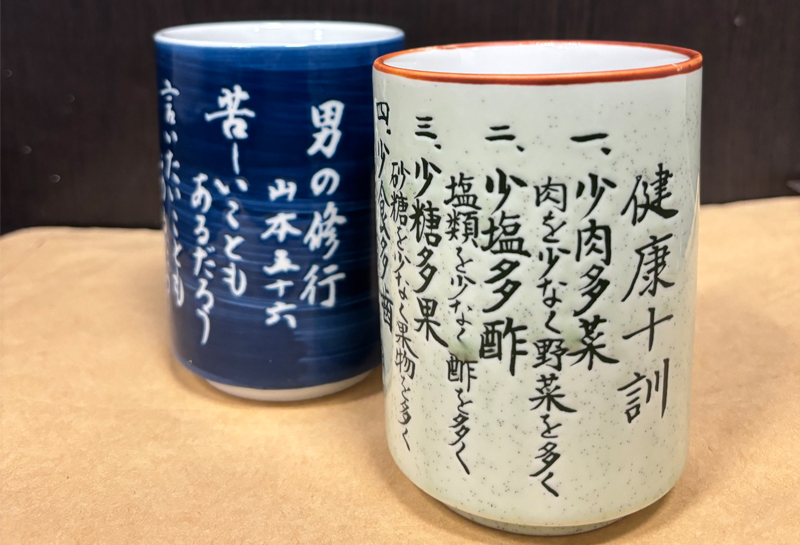 健康十訓
一、少肉多菜
肉を少なく野菜を多く
二、少塩多酢
塩類を少なく酢を多く
三、少糖多果
砂糖を少なく果物を多く
四、少食多歯
男の修行
山本五十六
苦しいこともあるだろう
言いたいことも